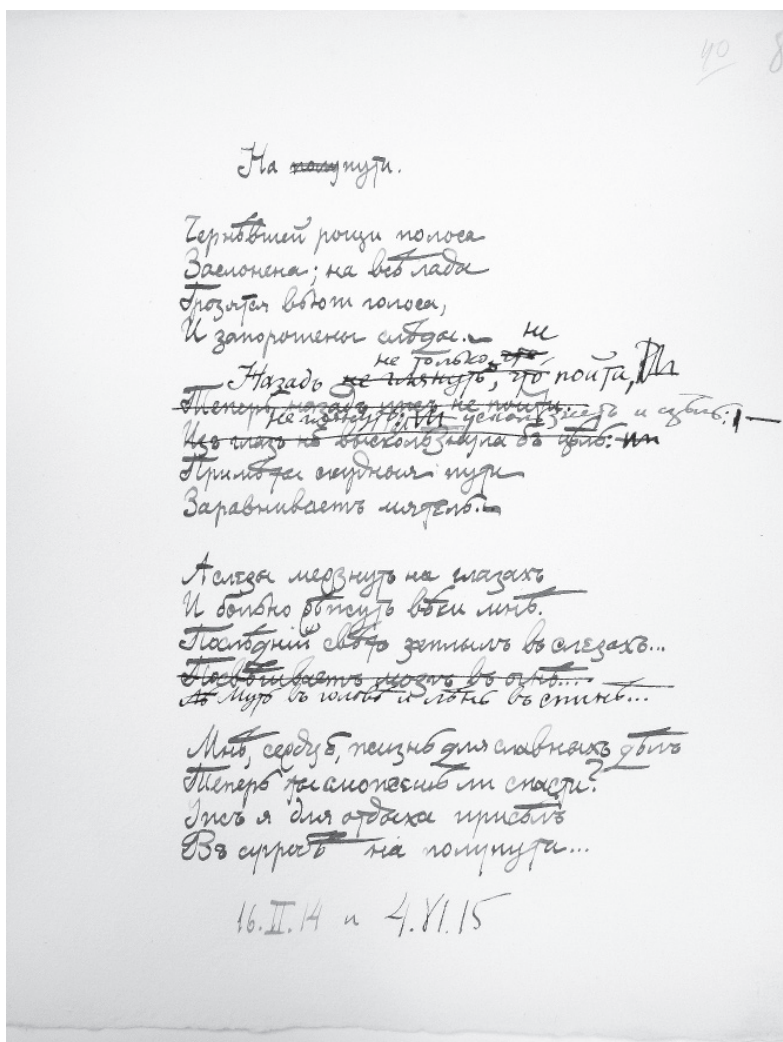 40 8
На полупути.
Чернѣвшей рощи полоса
Заслонена; на всѣ лада
Грозятся вьюг голоса,
И запорошены слѣды. —
не
не только, что,
Назадъ не глянуть, что пойти,
Теперь назадъ ужъ не пойти
не глянуть: ускользнетъ и цѣль: —
Изъ глазъ не выскользнула бъ цѣль:
Примѣты скудныя пути
Заравниваетъ мятель. —
А слезы мерзнутъ на глазахъ
И больно рѣжутъ вѣки мнѣ.
Послѣдній свѣтъ заплылъ въ слезахъ...
мозгъ въ огнѣ...
Муть въ головѣ и лѣнь въ спинѣ...
Мнѣ, сердце, жизнь для славныхъ дѣлъ
Теперь ты сможешь ли спасти?
Ужъ я для отдыха присѣлъ
Въ сугробъ на полупути...
16.II.14 и 4.VI.15